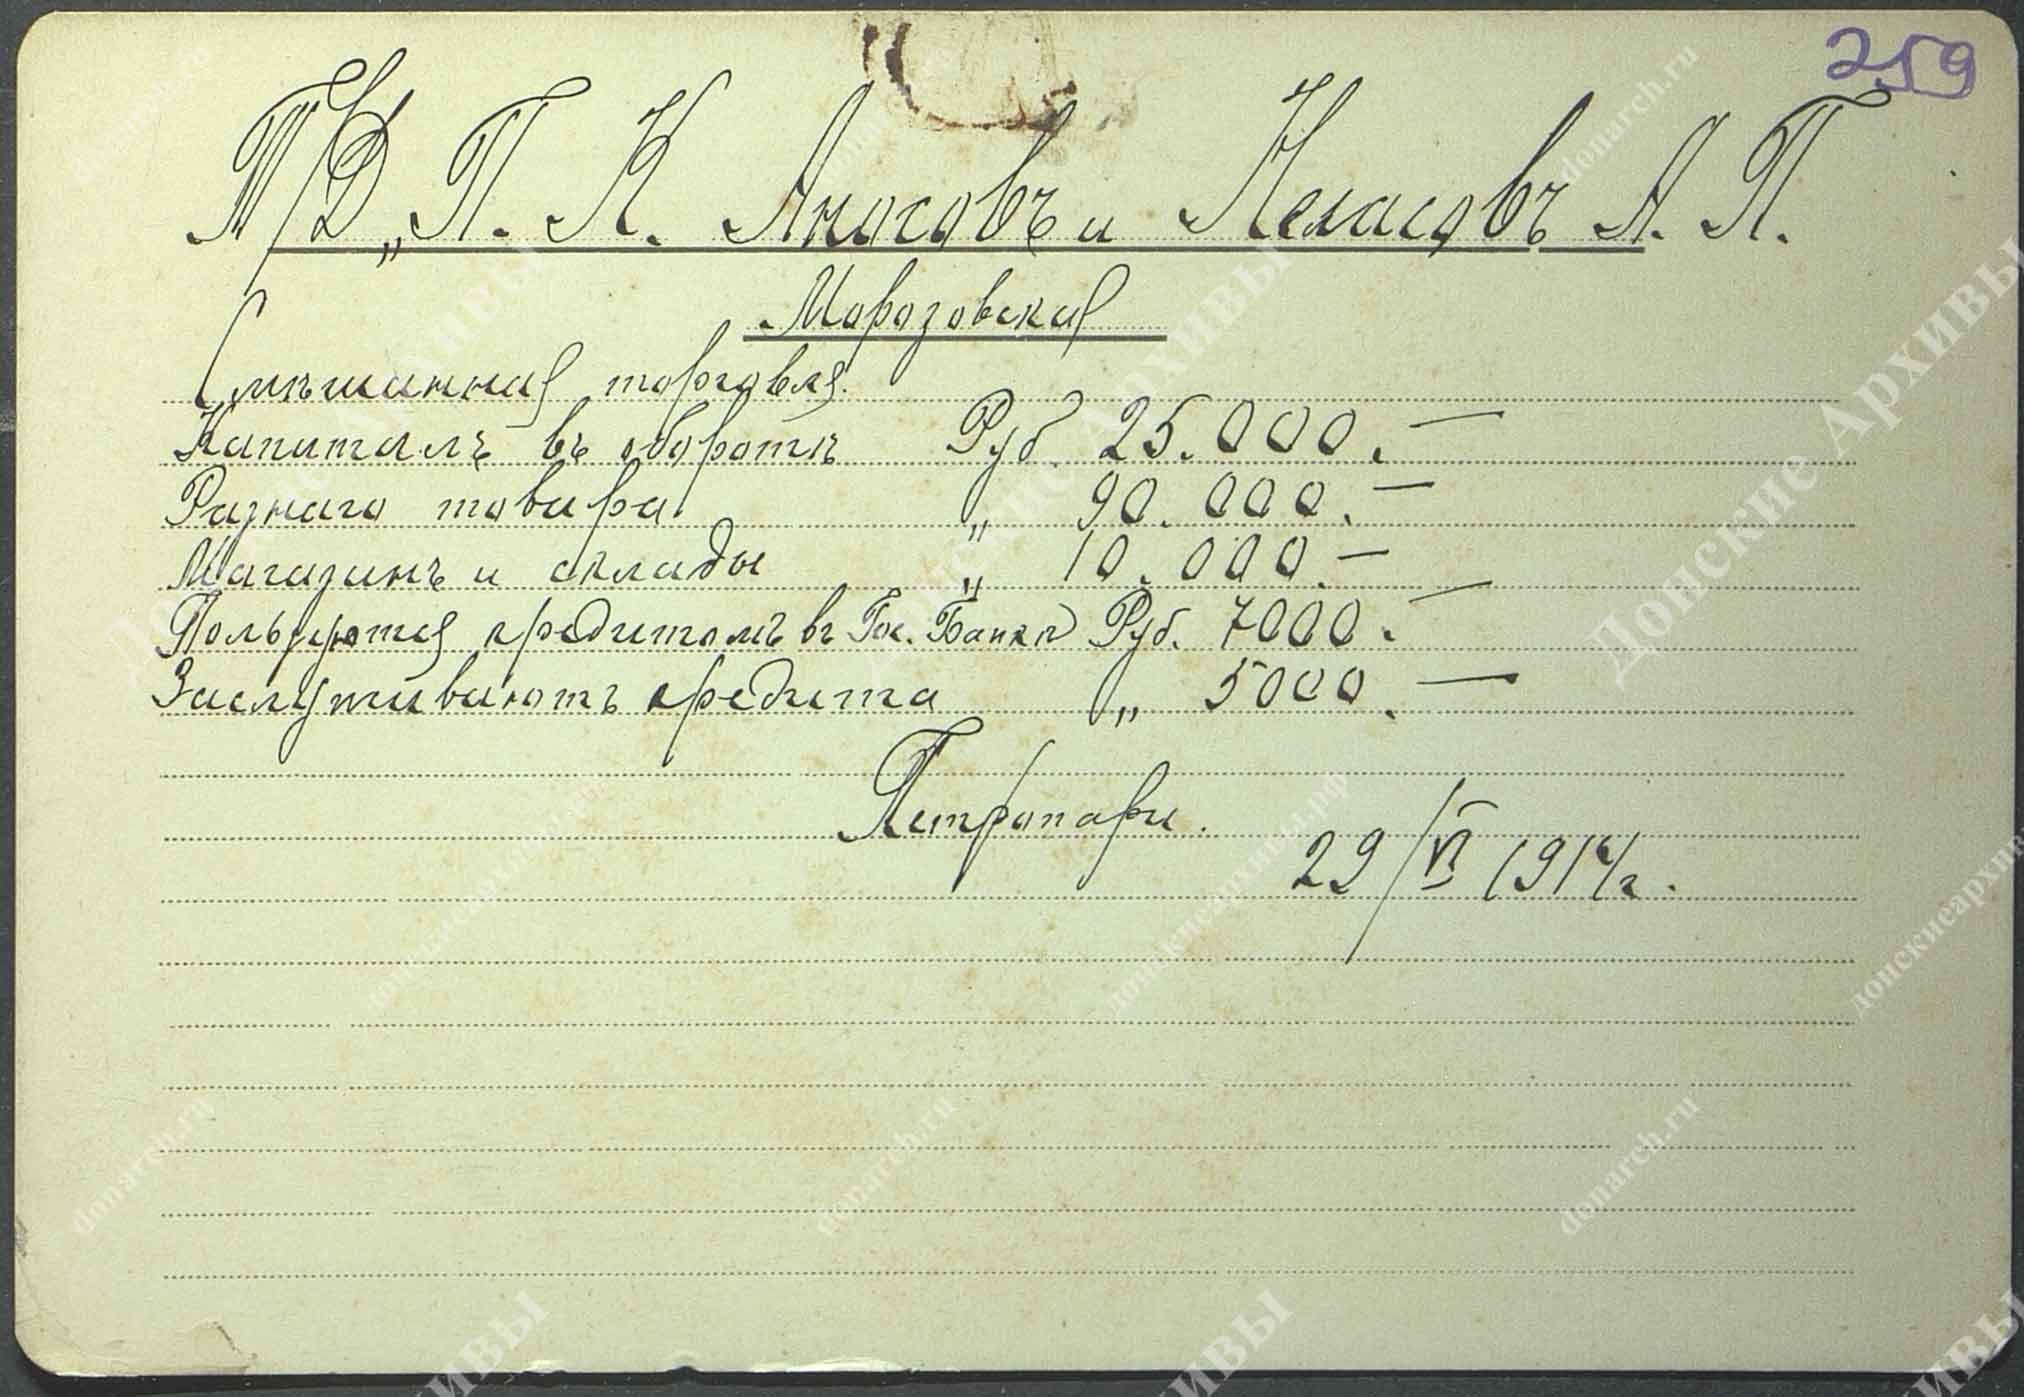 259
Т/Д „П. К. Аносовъ и Неласовъ А. П.
Морозовская
Смѣшанная торговля.
Капиталъ въ оборотѣ Руб. 25.000.—
Разнаго товара „ 90.000.—
Магазинъ и склады „ 10.000.—
Пользуются кредитомъ въ Гос. Банкѣ Руб. 7000.—
Заслуживаютъ кредита „ 5000.—
29/VI 1914г.
donarch.ru
Донские Архивы
донскиеархивы.рф